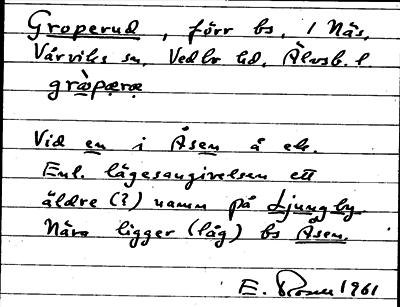 Groperud, förr bs, i Näs,
Vårviks sn, Vedbo hd, Älvsb. l.
græ̀pæræ
Vid en i Åsen å ek.
Enl. lägesangivelsen ett
äldre (?) namn på Ljungby.
Nära ligger (låg) bs Åsen.
E. 1961